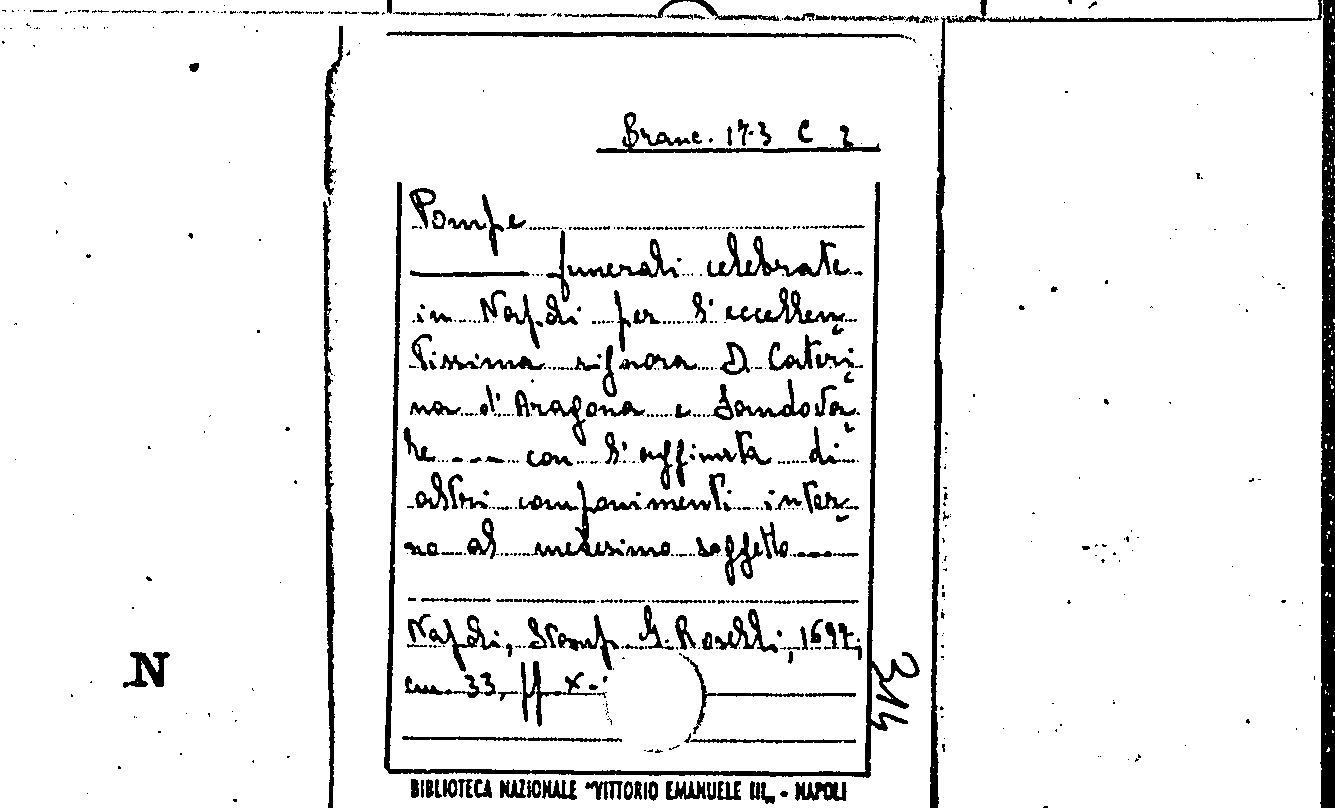 Branc. 173 C 2
Pompe
funerali celebrate
in Napoli per l'eccellen-
tissima signora D. Cateri-
na d'Aragona e Sandova-
le --- con l'aggiunta di
altri componimenti inter-
no al medesimo soggetto ---
Napoli, Stamp. G. Roselli, 1697;
cm. 33, ff. X-
314
N
BIBLIOTECA NAZIONALE "VITTORIO EMANUELE III„ - NAPOLI